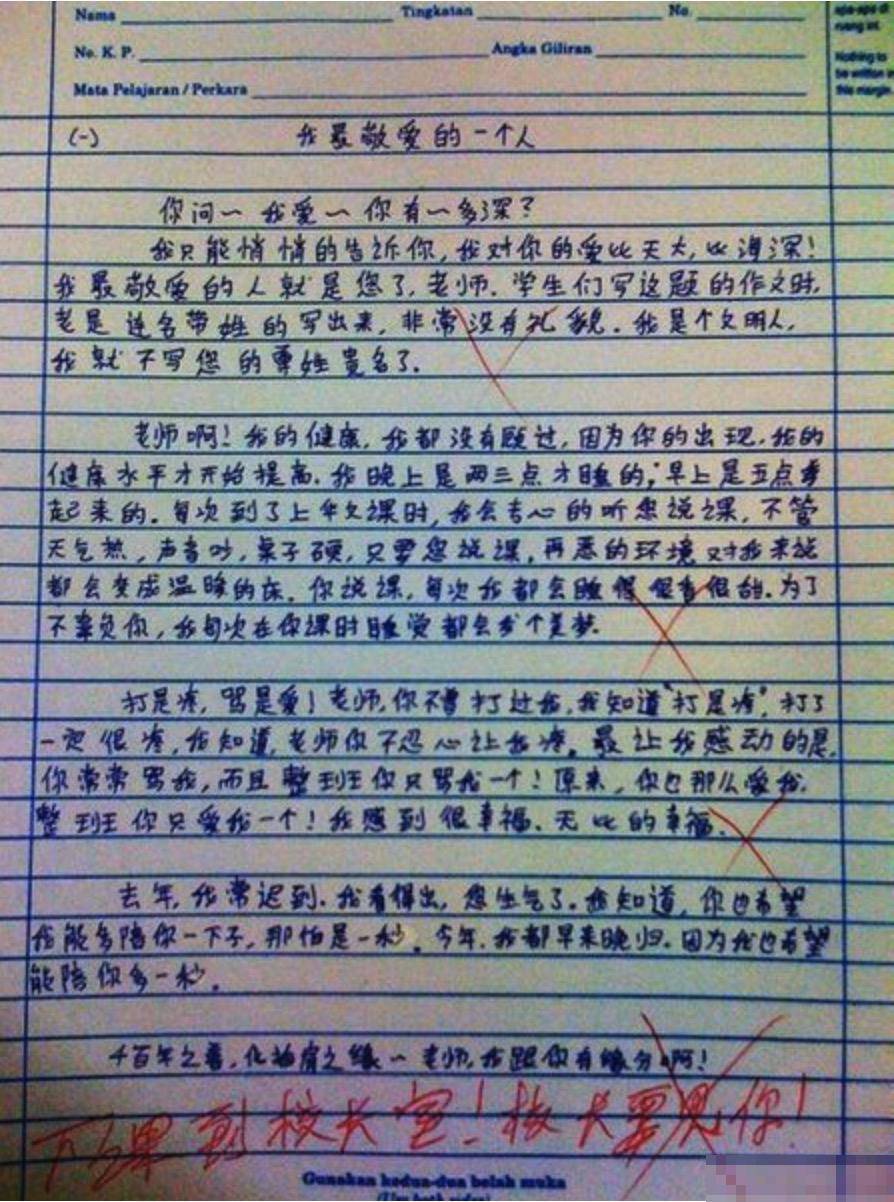 Nama Tingkatan No.
No. K. P. Angka Giliran
Mata Pelajaran / Perkara
ruang ini.
Nothing to
be written in
this margin.
(一) 我最敬爱的一个人
你问～我爱～你有～多深？
我只能悄悄的告诉你,我对你的爱比天大,比海深!
我最敬爱的人就是您了,老师.学生们写这题的作文时,
老是连名带姓的写出来,非常没有礼貌.我是个文明人,
我就不写您的尊姓贵名了.
老师啊!我的健康,我都没有顾过,因为你的出现,我的
健康水平才开始提高.我晚上是两三点才睡的,早上是五点
起来的.每次到了上华文课时,我会专心的听您说课,不管
天气热,声音吵,桌子硬,只要您说课,再恶的环境对我来说
都会变成温暖的床.你说课,每次我都会睡得很香很甜.为了
不辜负你,我每次在你课时睡觉都会发个美梦.
打是疼,骂是爱!老师,你不曾打过我,我知道"打是疼",打了
一定很疼,我知道,老师你不忍心让我疼.最让我感动的是,
你常常骂我,而且整班你只骂我一个!原来,你也那么爱我,
整班你只爱我一个!我感到很幸福.无比的幸福.
去年,我常迟到.我看得出,您生气了.我知道,你也希望
我能多陪你一下子,那怕是一秒.今年,我都早来晚归.因为我也希望
能陪你多一秒.
千百年之,化之缘～老师,我跟你有缘分啊!
下课到校长室!校长要见你!
Gunakan kedua-dua belah muka
(Use both sides)